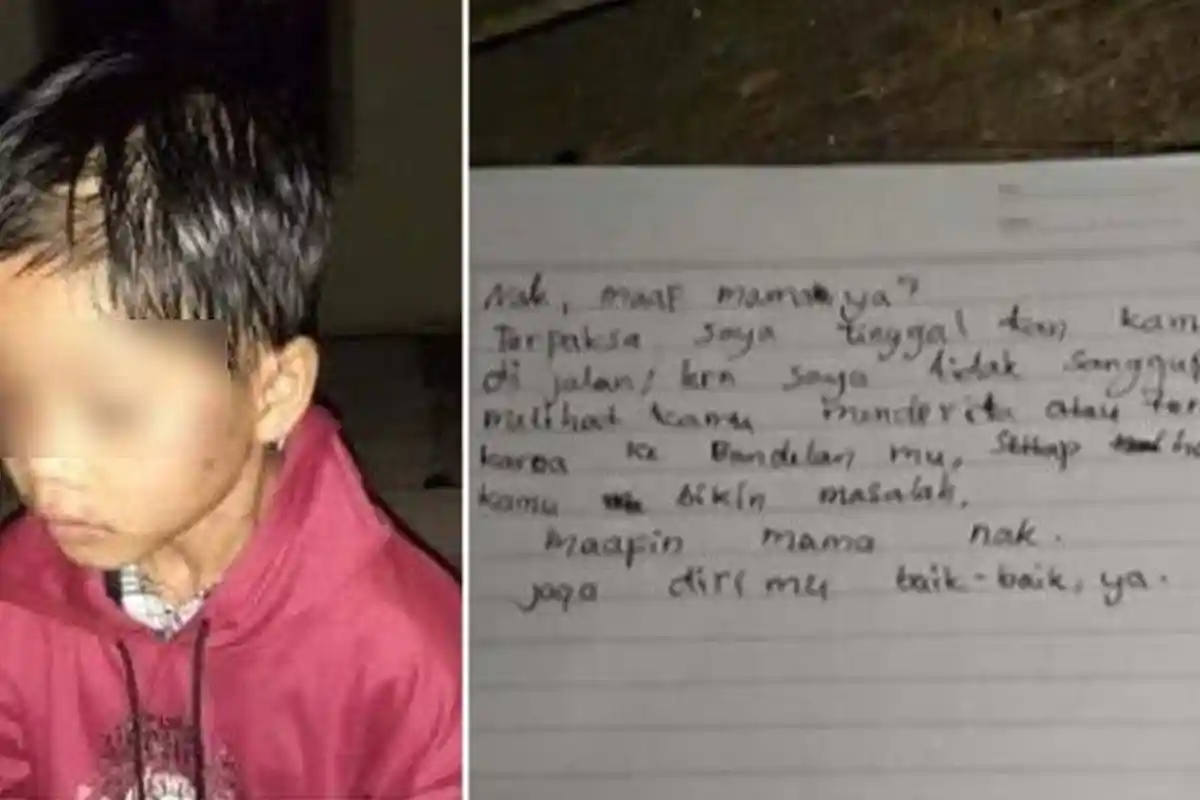 Nak, maaf mamah ya?
Terpaksa saya tinggal kan kam
di jalan, krn saya tidak sanggup
melihat kamu menderita atau
karoa ke Bandelan mu, Setiap
kamu bikin masalah.
maafin mama nak.
jaga diri mu baik-baik, ya.